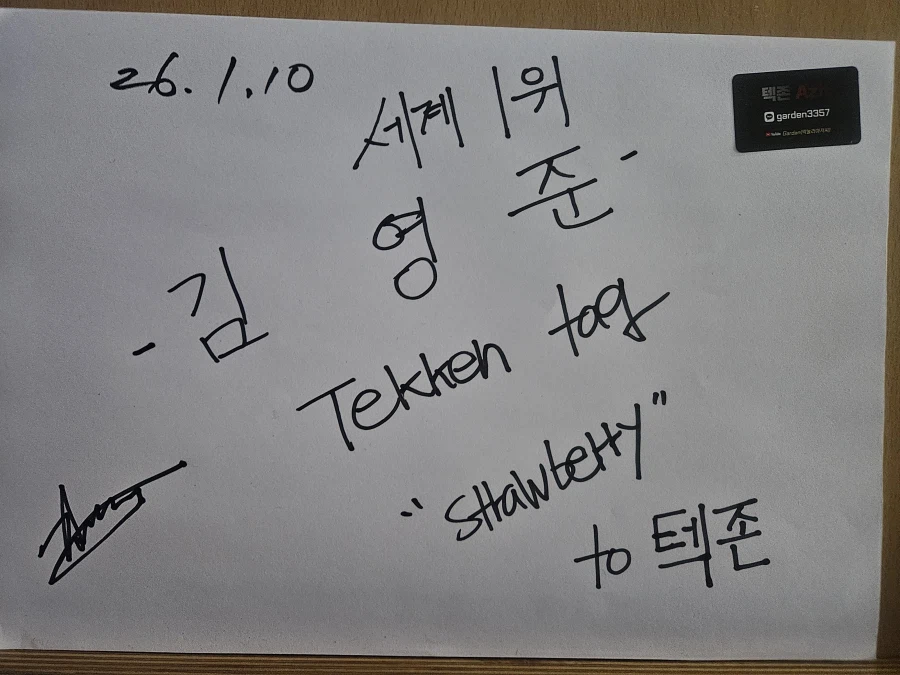 26.1.10
세계 1위
- 김 영 준 -
Tekken tag
"strawberry"
to 텍존
텍존 Az
garden3357